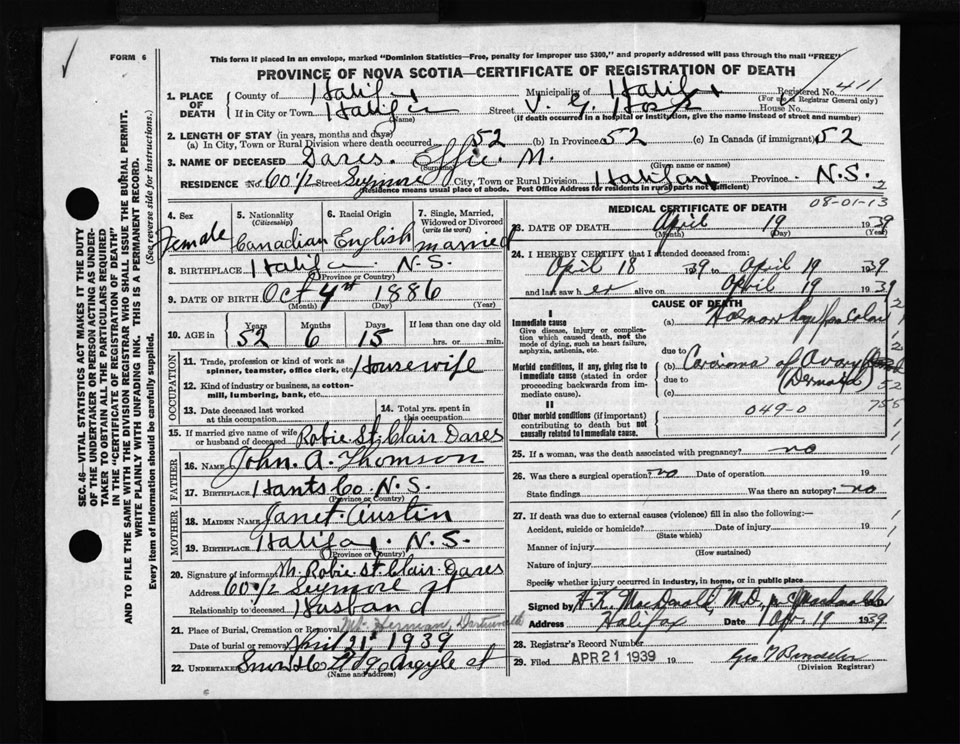 FORM 6
This form if placed in an envelope, marked "Dominion Statistics—Free, penalty for improper use $300," and properly addressed will pass through the mail "FREE"
PROVINCE OF NOVA SCOTIA—CERTIFICATE OF REGISTRATION OF DEATH
1. PLACE OF DEATH County of Halifax Municipality of Halifax Registered No. 411
(For use of Registrar General only)
If in City or Town Halifax Street V. G. Hosp House No.
(Name) (If death occurred in a hospital or institution, give the name instead of street and number)
2. LENGTH OF STAY (in years, months and days)
(a) In City, Town or Rural Division where death occurred 52 (b) In Province 52 (c) In Canada (if immigrant) 52
3. NAME OF DECEASED Dares. Effie. M.
(Surname) (Given name or names)
RESIDENCE No. 60 1/2 Street Seymore City, Town or Rural Division Halifax Province N.S.
(Residence means usual place of abode. Post Office Address for residents in rural parts not sufficient)
2
4. Sex Female
5. Nationality (Citizenship) Canadian
6. Racial Origin English
7. Single, Married, Widowed or Divorced (write the word) married
8. BIRTHPLACE Halifax N.S.
(Province or Country)
9. DATE OF BIRTH Oct 4th 1886
(Month) (Day) (Year)
10. AGE in Years 52 Months 6 Days 15 If less than one day old hrs. or min.
OCCUPATION
11. Trade, profession or kind of work as spinner, teamster, office clerk, etc. Housewife
12. Kind of industry or business, as cotton-mill, lumbering, bank, etc.
13. Date deceased last worked at this occupation
14. Total yrs. spent in this occupation
15. If married give name of wife or husband of deceased Robie St. Clair Dares
FATHER
16. NAME John. A. Thomson
17. BIRTHPLACE Hants Co. N.S.
(Province or Country)
MOTHER
18. MAIDEN NAME Janet Austin
19. BIRTHPLACE Halifax. N.S.
(Province or Country)
20. Signature of informant M. Robie St. Clair Dares
Address 60 1/2 Seymore St
Relationship to deceased Husband
21. Place of Burial, Cremation or Removal Mt. Hermon, Dartmouth
Date of burial or removal April 21st 1939
22. UNDERTAKER Snow & Co Ltd Argyle st
(Name and address)
08-01-13
MEDICAL CERTIFICATE OF DEATH
23. DATE OF DEATH April 19 1939
(Month) (Day) (Year)
24. I HEREBY CERTIFY that I attended deceased from:
April 18 1939 to April 19 1939
and last saw her alive on April 19 1939
CAUSE OF DEATH
I
Immediate cause
Give disease, injury or complication which caused death, not the mode of dying, such as heart failure, asphyxia, asthenia, etc.
(a) Haemorrhage from Colon
due to
Morbid conditions, if any, giving rise to immediate cause (stated in order proceeding backwards from immediate cause).
(b) Carcinoma of Ovary
due to (Dermoid)
(c)
II
Other morbid conditions (if important) contributing to death but not causally related to immediate cause.
049-0
25. If a woman, was the death associated with pregnancy? no
26. Was there a surgical operation? no Date of operation 19
State findings Was there an autopsy? no
27. If death was due to external causes (violence) fill in also the following:—
Accident, suicide or homicide? Date of injury 19
(State which)
Manner of injury
(How sustained)
Nature of injury
Specify whether injury occurred in industry, in home, or in public place
Signed by H. K. MacDonald, M.D.
Address Halifax Date Apr 19 1939
28. Registrar's Record Number
29. Filed APR 21 1939 19
(Division Registrar)
SEC. 46—VITAL STATISTICS ACT MAKES IT THE DUTY OF THE UNDERTAKER OR PERSON ACTING AS UNDERTAKER TO OBTAIN ALL THE PARTICULARS REQUIRED IN THE "CERTIFICATE OF REGISTRATION OF DEATH"
AND TO FILE THE SAME WITH THE DIVISION REGISTRAR WHO SHALL ISSUE THE BURIAL PERMIT.
WRITE PLAINLY WITH UNFADING INK. THIS IS A PERMANENT RECORD.
Every item of information should be carefully supplied. (See reverse side for instructions.)